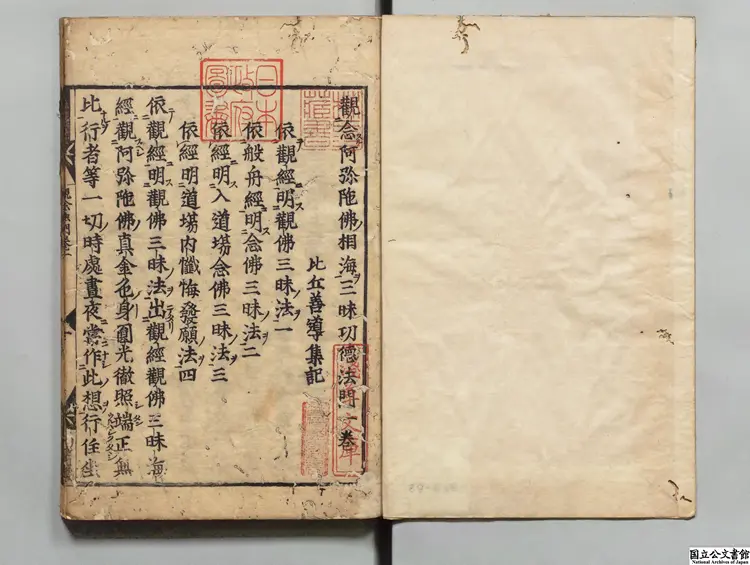 觀念阿弥陁佛相海三昧功德法門一卷
比丘善導集記
依觀經明觀佛三昧法一
依般舟經明念佛三昧法二
依經明入道塲念佛三昧法三
依經明道塲内懺悔發願法四
依觀經明觀佛三昧法出觀經觀佛三昧海
經觀阿弥陁佛真金色身圎光徹照端正無
比行者等一切時處晝夜常作此想行住坐
日本
政府
圖書
国立公文書館
National Archives of Japan